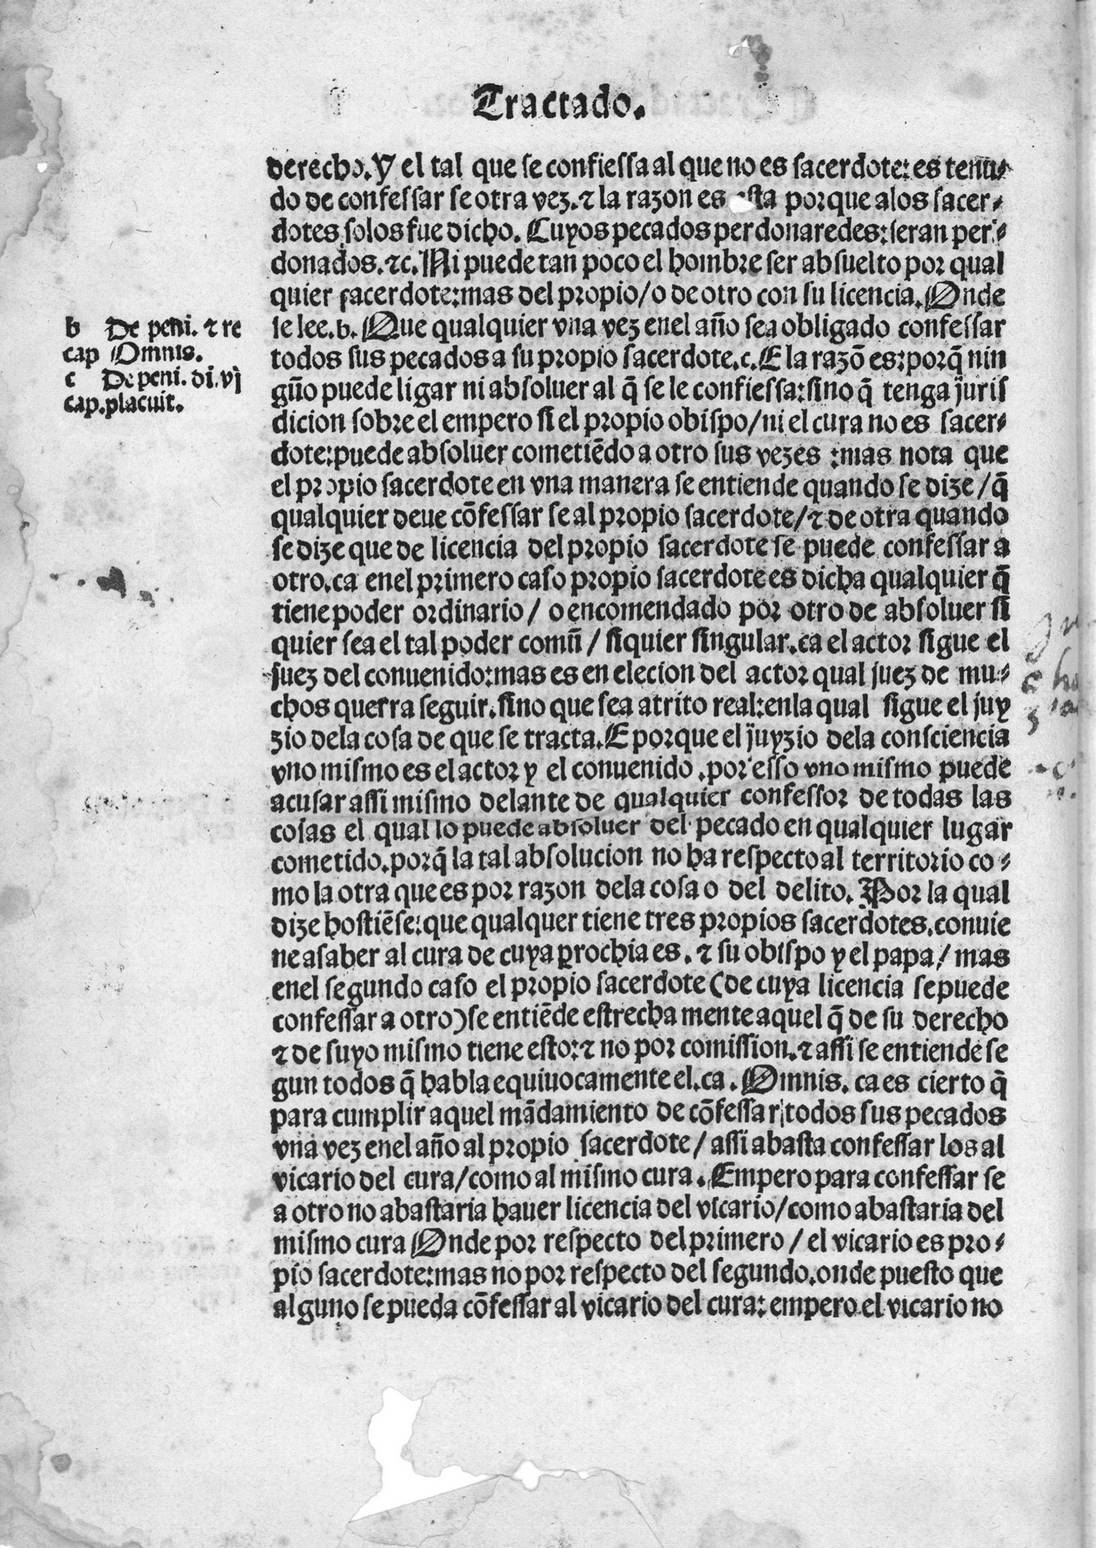 Tractado.
derecho. Y el tal que se confiessa al que no es sacerdote: es tenu-
do de confessar se otra vez. ⁊ la razon es esta porque alos sacer-
dotes solos fue dicho. Cuyos pecados perdonaredes: seran per-
donados. ⁊c. Ni puede tan poco el hombre ser absuelto por qual
quier sacerdote: mas del propio / o de otro con su licencia. Onde
se lee. b. Que qualquier vna vez enel año sea obligado confessar
todos sus pecados a su propio sacerdote. c. E la razõ es: porq̃ nin
gũo puede ligar ni absoluer al q̃ se le confiessa: sino q̃ tenga juris
dicion sobre el empero si el propio obispo / ni el cura no es sacer-
dote: puede absoluer cometiẽdo a otro sus vezes : mas nota que
el propio sacerdote en vna manera se entiende quando se dize / q̃
qualquier deue cõfessar se al propio sacerdote / ⁊ de otra quando
se dize que de licencia del propio sacerdote se puede confessar a
otro. ca enel primero caso propio sacerdote es dicha qualquier q̃
tiene poder ordinario / o encomendado por otro de absoluer si
quier sea el tal poder comũ / siquier singular. ca el actor sigue el
juez del conuenido: mas es en elecion del actor qual juez de mu-
chos querra seguir. sino que sea atrito real: enla qual sigue el juy
zio dela cosa de que se tracta. E porque el juyzio dela consciencia
vno mismo es el actor y el conuenido . por esso vno mismo puede
acusar assi mismo delante de qualquier confessor de todas las
cosas el qual lo puede absoluer del pecado en qualquier lugar
cometido. porq̃ la tal absolucion no ha respecto al territorio co-
mo la otra que es por razon dela cosa o del delito. Por la qual
dize hostiẽse: que qualquer tiene tres propios sacerdotes. conuie
ne asaber al cura de cuya ꝑrochia es. ⁊ su obispo y el papa / mas
enel segundo caso el propio sacerdote (de cuya licencia se puede
confessar a otro) se entiẽde estrecha mente aquel q̃ de su derecho
⁊ de suyo mismo tiene esto: ⁊ no por comission. ⁊ assi se entiende se
gun todos q̃ habla equiuocamente el. ca. Omnis. ca es cierto q̃
para cumplir aquel mãdamiento de cõfessar todos sus pecados
vna vez enel año al propio sacerdote / assi abasta confessar los al
vicario del cura / como al mismo cura. Empero para confessar se
a otro no abastaria hauer licencia del vicario / como abastaria del
mismo cura Onde por respecto del primero / el vicario es pro-
pio sacerdote: mas no por respecto del segundo. onde puesto que
alguno se pueda cõfessar al vicario del cura: empero el vicario no
b De peni. ⁊ re
cap Omnis.
c De peni. di. vj
cap. placuit.